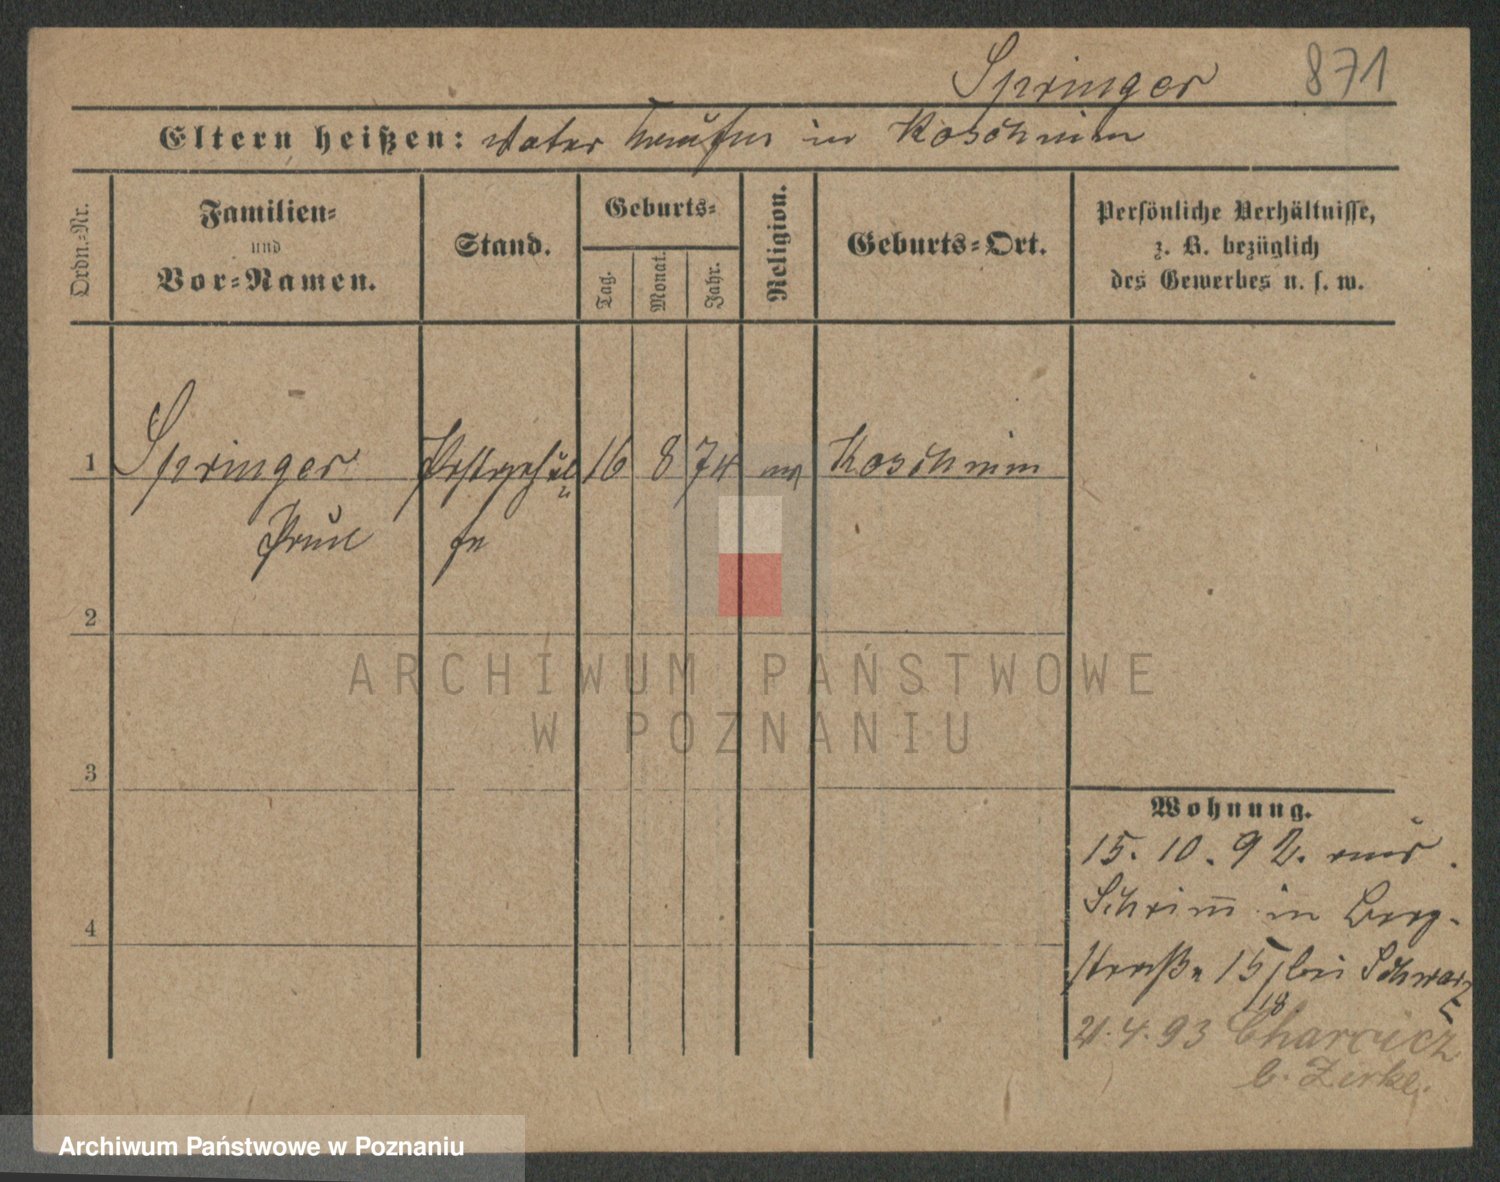 Springer 871
Eltern heißen: Vater in Koschmin
Ordn.-Nr.
Familien-
und
Vor-Namen.
Stand.
Geburts-
Tag.
Monat.
Jahr.
Religion.
Geburts-Ort.
Persönliche Verhältnisse,
z. B. bezüglich
des Gewerbes u. s. w.
1 Springer Postgehül 16 8 74 Koschmin
Paul fe
2
3
4
Wohnung.
15. 10. 92. aus
Schrimm in Berg-
straße 15/18 bei Schwarz
21. 4. 93 Charcicz
b. Zirke.
ARCHIWUM PAŃSTWOWE
W POZNANIU
Archiwum Państwowe w Poznaniu